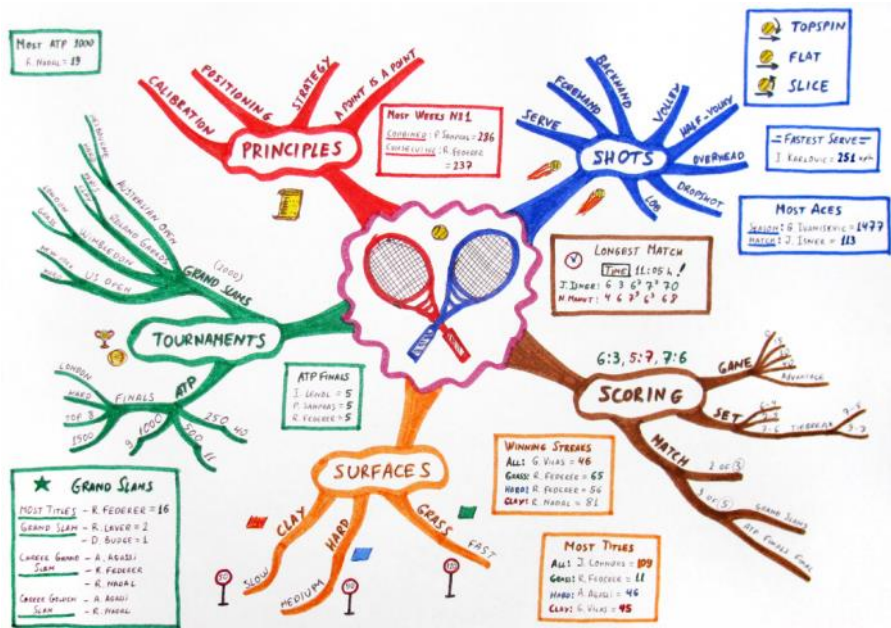 MOST ATP 1000
R. NADAL = 19
CALIBRATION
POSITIONING
STRATEGY
A POINT IS A POINT
PRINCIPLES
MOST WEEKS Nº1
COMBINED: P. SAMPRAS = 286
CONSECUTIVE: R. FEDERER
= 237
SERVE
FOREHAND
BACKHAND
VOLLEY
HALF-VOLLEY
OVERHEAD
DROPSHOT
LOB
SHOTS
TOPSPIN
FLAT
SLICE
FASTEST SERVE
I. KARLOVIC = 251 kph
MOST ACES
SEASON: G. IVANISEVIC = 1477
MATCH: J. ISNER = 113
LONGEST MATCH
TIME 11:05 h!
J. ISNER: 6 3 6⁷ 7⁷ 70
N. MAHUT: 4 6 7⁹ 6³ 68
MELBOURNE
HARD
AUSTRALIAN OPEN
PARIS
CLAY
ROLAND GARROS
LONDON
GRASS
WIMBLEDON
NEW YORK
HARD
US OPEN
GRAND SLAMS
(2000)
TOURNAMENTS
ATP
FINALS
LONDON
HARD
TOP 8
1500
1000
9
500
11
250
40
ATP FINALS
I. LENDL = 5
P. SAMPRAS = 5
R. FEDERER = 5
6:3, 5:7, 7:6
SCORING
GAME
ADVANTAGE
SET
6-4
7-5
7-6
TIEBREAK
7-5
9-7
MATCH
2 OF (3)
3 OF (5)
GRAND SLAMS
ATP FINALS FINAL
SURFACES
CLAY
SLOW
HARD
MEDIUM
GRASS
FAST
WINNING STREAKS
ALL: G. VILAS = 46
GRASS: R. FEDERER = 65
HARD: R. FEDERER = 56
CLAY: R. NADAL = 81
MOST TITLES
ALL: J. CONNORS = 109
GRASS: R. FEDERER = 11
HARD: A. AGASSI = 46
CLAY: G. VILAS = 45
GRAND SLAMS
MOST TITLES - R. FEDERER = 16
GRAND SLAM - R. LAVER = 2
- D. BUDGE = 1
CAREER GRAND SLAM - A. AGASSI
- R. FEDERER
- R. NADAL
CAREER GOLDEN SLAM - A. AGASSI
- R. NADAL